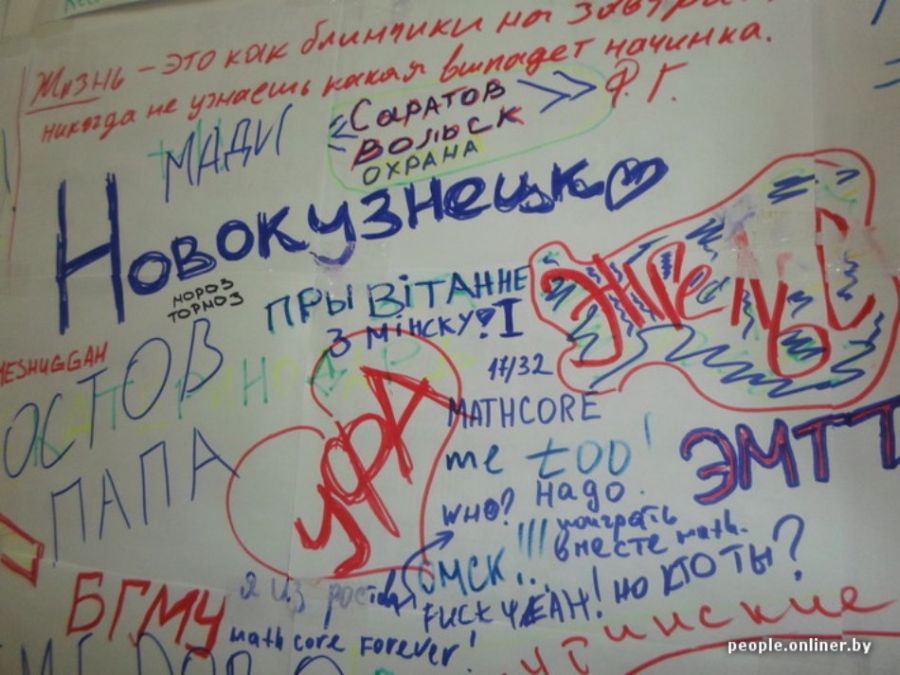 Жизнь – это как блинчики на
никогда не узнаешь какая выпадет начинка.
МАДИ
Саратов
Вольск
охрана
Ф. Г.
Новокузнецк
мороз
тормоз
Прывітанне
з Мінску!
I
17/32
Энгельс
MESHUGGAH
ОСТОВ
ПАПА
УФА
MATHCORE
me too!
ЭМТТ
who?
надо
поиграть
вместе math.
!!!
ОМСК...
БГМУ
я из
FUCK YEAH! но кто ты?
math core forever!
people.onliner.by